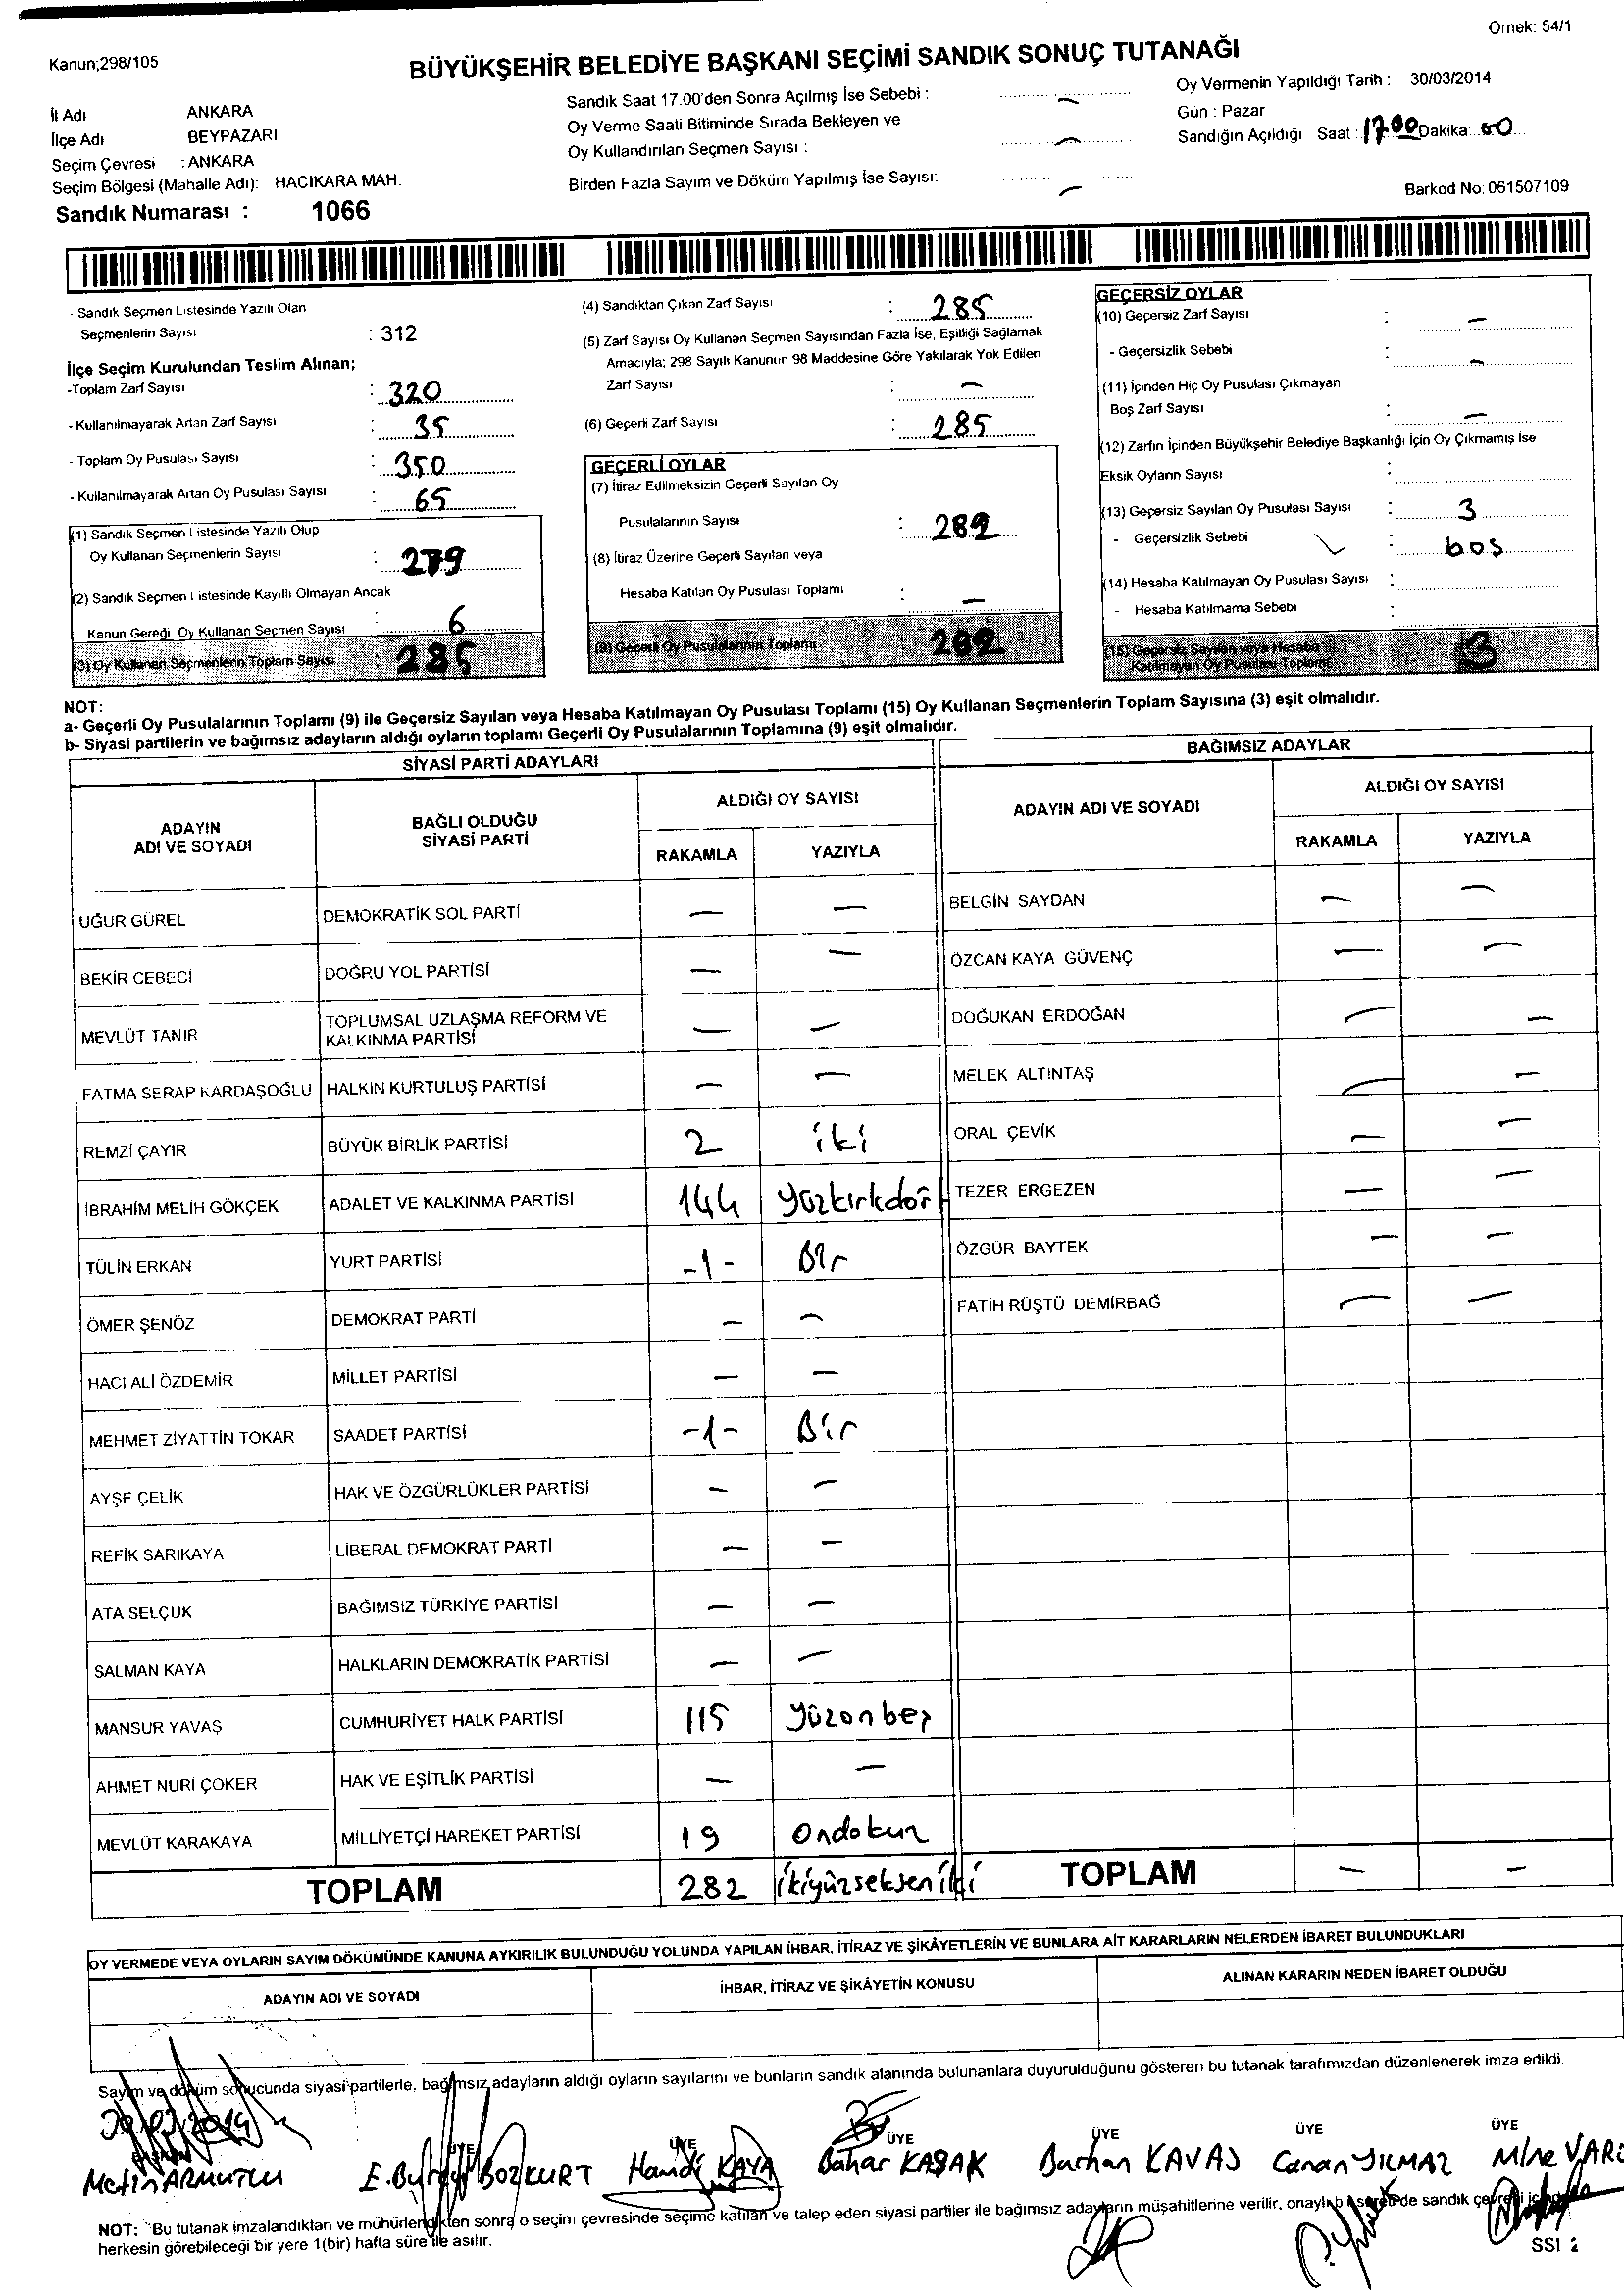 Örnek: 54/1
Kanun;298/105
BÜYÜKŞEHİR BELEDİYE BAŞKANI SEÇİMİ SANDIK SONUÇ TUTANAĞI
İl Adı ANKARA
İlçe Adı BEYPAZARI
Seçim Çevresi : ANKARA
Seçim Bölgesi (Mahalle Adı): HACIKARA MAH.
Sandık Numarası : 1066
Sandık Saat 17.00'den Sonra Açılmış İse Sebebi : –
Oy Verme Saati Bitiminde Sırada Bekleyen ve
Oy Kullandırılan Seçmen Sayısı : –
Birden Fazla Sayım ve Döküm Yapılmış İse Sayısı: –
Oy Vermenin Yapıldığı Tarih : 30/03/2014
Gün : Pazar
Sandığın Açıldığı Saat : 17.00 Dakika:
Barkod No: 061507109
- Sandık Seçmen Listesinde Yazılı Olan
Seçmenlerin Sayısı : 312
İlçe Seçim Kurulundan Teslim Alınan;
-Toplam Zarf Sayısı : 320
- Kullanılmayarak Artan Zarf Sayısı : 35
- Toplam Oy Pusulası Sayısı : 350
- Kullanılmayarak Artan Oy Pusulası Sayısı : 65
(1) Sandık Seçmen Listesinde Yazılı Olup
Oy Kullanan Seçmenlerin Sayısı : 279
(2) Sandık Seçmen Listesinde Kayıtlı Olmayan Ancak
Kanun Gereği Oy Kullanan Seçmen Sayısı : 6
(3) Oy Kullanan Seçmenlerin Toplam Sayısı : 285
(4) Sandıktan Çıkan Zarf Sayısı : 285
(5) Zarf Sayısı Oy Kullanan Seçmen Sayısından Fazla İse, Eşitliği Sağlamak
Amacıyla; 298 Sayılı Kanunun 98 Maddesine Göre Yakılarak Yok Edilen
Zarf Sayısı : –
(6) Geçerli Zarf Sayısı : 285
GEÇERLİ OYLAR
(7) İtiraz Edilmeksizin Geçerli Sayılan Oy
Pusulalarının Sayısı : 282
(8) İtiraz Üzerine Geçerli Sayılan veya
Hesaba Katılan Oy Pusulası Toplamı : –
(9) Geçerli Oy Pusulalarının Toplamı 282
GEÇERSİZ OYLAR
(10) Geçersiz Zarf Sayısı : –
- Geçersizlik Sebebi : –
(11) İçinden Hiç Oy Pusulası Çıkmayan
Boş Zarf Sayısı : –
(12) Zarfın İçinden Büyükşehir Belediye Başkanlığı İçin Oy Çıkmamış İse
Eksik Oyların Sayısı :
(13) Geçersiz Sayılan Oy Pusulası Sayısı : 3
- Geçersizlik Sebebi : boş
(14) Hesaba Katılmayan Oy Pusulası Sayısı :
- Hesaba Katılmama Sebebi :
(15) Geçersiz Sayılan veya Hesaba
Katılmayan Oy Pusulası Toplamı 3
NOT:
a- Geçerli Oy Pusulalarının Toplamı (9) ile Geçersiz Sayılan veya Hesaba Katılmayan Oy Pusulası Toplamı (15) Oy Kullanan Seçmenlerin Toplam Sayısına (3) eşit olmalıdır.
b- Siyasi partilerin ve bağımsız adayların aldığı oyların toplamı Geçerli Oy Pusulalarının Toplamına (9) eşit olmalıdır.
SİYASİ PARTİ ADAYLARI BAĞIMSIZ ADAYLAR
ADAYIN ADI VE SOYADI BAĞLI OLDUĞU SİYASİ PARTİ ALDIĞI OY SAYISI ADAYIN ADI VE SOYADI ALDIĞI OY SAYISI
RAKAMLA YAZIYLA RAKAMLA YAZIYLA
UĞUR GÜREL DEMOKRATİK SOL PARTİ – – BELGİN SAYDAN – –
BEKİR CEBECİ DOĞRU YOL PARTİSİ – – ÖZCAN KAYA GÜVENÇ – –
MEVLÜT TANIR TOPLUMSAL UZLAŞMA REFORM VE KALKINMA PARTİSİ – – DOĞUKAN ERDOĞAN – –
FATMA SERAP KARDAŞOĞLU HALKIN KURTULUŞ PARTİSİ – – MELEK ALTINTAŞ – –
REMZİ ÇAYIR BÜYÜK BİRLİK PARTİSİ 2 iki ORAL ÇEVİK – –
İBRAHİM MELİH GÖKÇEK ADALET VE KALKINMA PARTİSİ 144 yüzkırkdört TEZER ERGEZEN – –
TÜLİN ERKAN YURT PARTİSİ -1- Bir ÖZGÜR BAYTEK – –
ÖMER ŞENÖZ DEMOKRAT PARTİ – – FATİH RÜŞTÜ DEMİRBAĞ – –
HACI ALİ ÖZDEMİR MİLLET PARTİSİ – –
MEHMET ZİYATTİN TOKAR SAADET PARTİSİ -1- Bir
AYŞE ÇELİK HAK VE ÖZGÜRLÜKLER PARTİSİ – –
REFİK SARIKAYA LİBERAL DEMOKRAT PARTİ – –
ATA SELÇUK BAĞIMSIZ TÜRKİYE PARTİSİ – –
SALMAN KAYA HALKLARIN DEMOKRATİK PARTİSİ – –
MANSUR YAVAŞ CUMHURİYET HALK PARTİSİ 115 yüzonbeş
AHMET NURİ ÇOKER HAK VE EŞİTLİK PARTİSİ – –
MEVLÜT KARAKAYA MİLLİYETÇİ HAREKET PARTİSİ 19 Ondokuz
TOPLAM 282 ikiyüzsekseniki TOPLAM – –
OY VERMEDE VEYA OYLARIN SAYIM DÖKÜMÜNDE KANUNA AYKIRILIK BULUNDUĞU YOLUNDA YAPILAN İHBAR, İTİRAZ VE ŞİKÂYETLERİN VE BUNLARA AİT KARARLARIN NELERDEN İBARET BULUNDUKLARI
ADAYIN ADI VE SOYADI İHBAR, İTİRAZ VE ŞİKÂYETİN KONUSU ALINAN KARARIN NEDEN İBARET OLDUĞU
Sayım ve döküm sonucunda siyasi partilerle, bağımsız adayların aldığı oyların sayılarını ve bunların sandık alanında bulunanlara duyurulduğunu gösteren bu tutanak tarafımızdan düzenlenerek imza edildi.
30/03/2014
BAŞKAN ÜYE ÜYE ÜYE ÜYE ÜYE ÜYE
Metin ARMUTLU E. BOZKURT Hamdi KAYA Bahar KAŞAK Burhan KAVAS Canan YILMAZ Mine
NOT: "Bu tutanak imzalandıktan ve mühürlendikten sonra o seçim çevresinde seçime katılan ve talep eden siyasi partiler ile bağımsız adayların müşahitlerine verilir, onaylı bir sureti de sandık çevresi içinde
herkesin görebileceği bir yere 1(bir) hafta süre ile asılır.
SSI 2